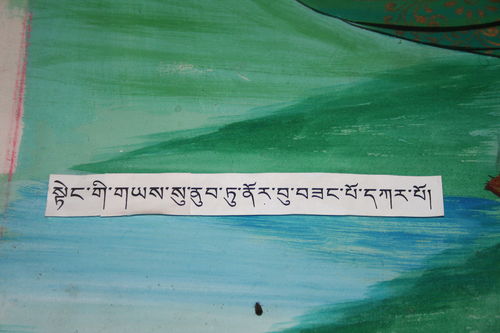 སྟེང་གི་གཡས་སུ་ནུབ་ཏུ་ནོར་བུ་བཟང་པོ་དཀར་པོ།